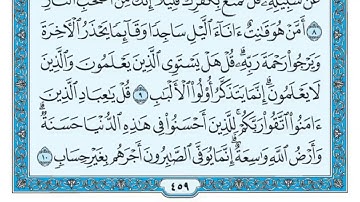 عَن سَبِيلِهِۦۚ قُلْ تَمَتَّعْ بِكُفْرِكَ قَلِيلًا إِنَّكَ مِنْ أَصْحَٰبِ ٱلنَّارِ
٨ أَمَّنْ هُوَ قَٰنِتٌ ءَانَآءَ ٱلَّيْلِ سَاجِدًا وَقَآئِمًا يَحْذَرُ ٱلْءَاخِرَةَ
وَيَرْجُوا۟ رَحْمَةَ رَبِّهِۦۗ قُلْ هَلْ يَسْتَوِى ٱلَّذِينَ يَعْلَمُونَ وَٱلَّذِينَ
لَا يَعْلَمُونَۗ إِنَّمَا يَتَذَكَّرُ أُو۟لُوا۟ ٱلْأَلْبَٰبِ ٩ قُلْ يَٰعِبَادِ ٱلَّذِينَ
ءَامَنُوا۟ ٱتَّقُوا۟ رَبَّكُمْۚ لِلَّذِينَ أَحْسَنُوا۟ فِى هَٰذِهِ ٱلدُّنْيَا حَسَنَةٌۗ
وَأَرْضُ ٱللَّهِ وَٰسِعَةٌۗ إِنَّمَا يُوَفَّى ٱلصَّٰبِرُونَ أَجْرَهُم بِغَيْرِ حِسَابٍ ١٠
٤٥٩